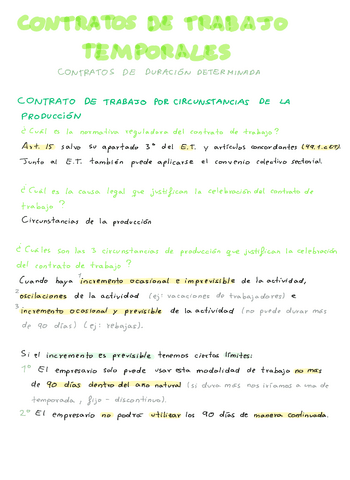 CONTRATOS DE TRABAJO
TEMPORALES
CONTRATOS DE DURACIÓN DETERMINADA
CONTRATO DE TRABAJO POR CIRCUNSTANCIAS DE LA
PRODUCCIÓN
¿Cuál es la normativa reguladora del contrato de trabajo?
Art. 15 salvo su apartado 3º del E.T. y artículos concordantes
Junto al E.T. también puede aplicarse el convenio colectivo sectorial.
¿Cuál es la causa legal que justifican la celebración del contrato de
trabajo?
Circunstancias de la producción
¿Cuáles son las 3 circunstancias de producción que justifican la celebración
del contrato de trabajo?
Cuando haya 1 incremento ocasional e imprevisible de la actividad,
2 oscilaciones de la actividad (ej: vacaciones de trabajadores) e
3 incremento ocasional y previsible de la actividad (no puede durar más
de 90 días) (ej: rebajas).
Si el incremento es previsible tenemos ciertos límites:
1º El empresario solo puede usar esta modalidad de trabajo no más
de 90 días dentro del año natural (si dura más nos iríamos a una de
temporada, fijo-discontinuo).
2º El empresario no podrá utilizar los 90 días de manera continuada.